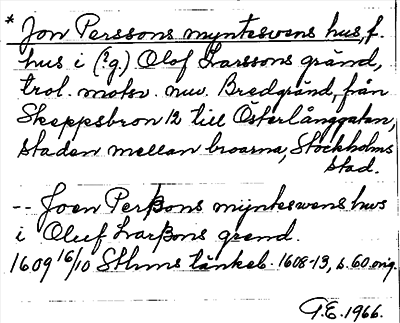 * Jon Perssons myntesvens hus, f.
hus i (?g.) Olof Larssons gränd,
trol. motsv. nuv. Bredgränd, från
Skeppsbron 12 till Österlånggatan,
staden mellan broarna, Stockholms
stad.
-- Joen Perßons myntesvens hus
i Oluf Larßons grend.
1609 16/10 Sthms tänkeb. 1608-13, s. 60 orig.
G.E. 1966.